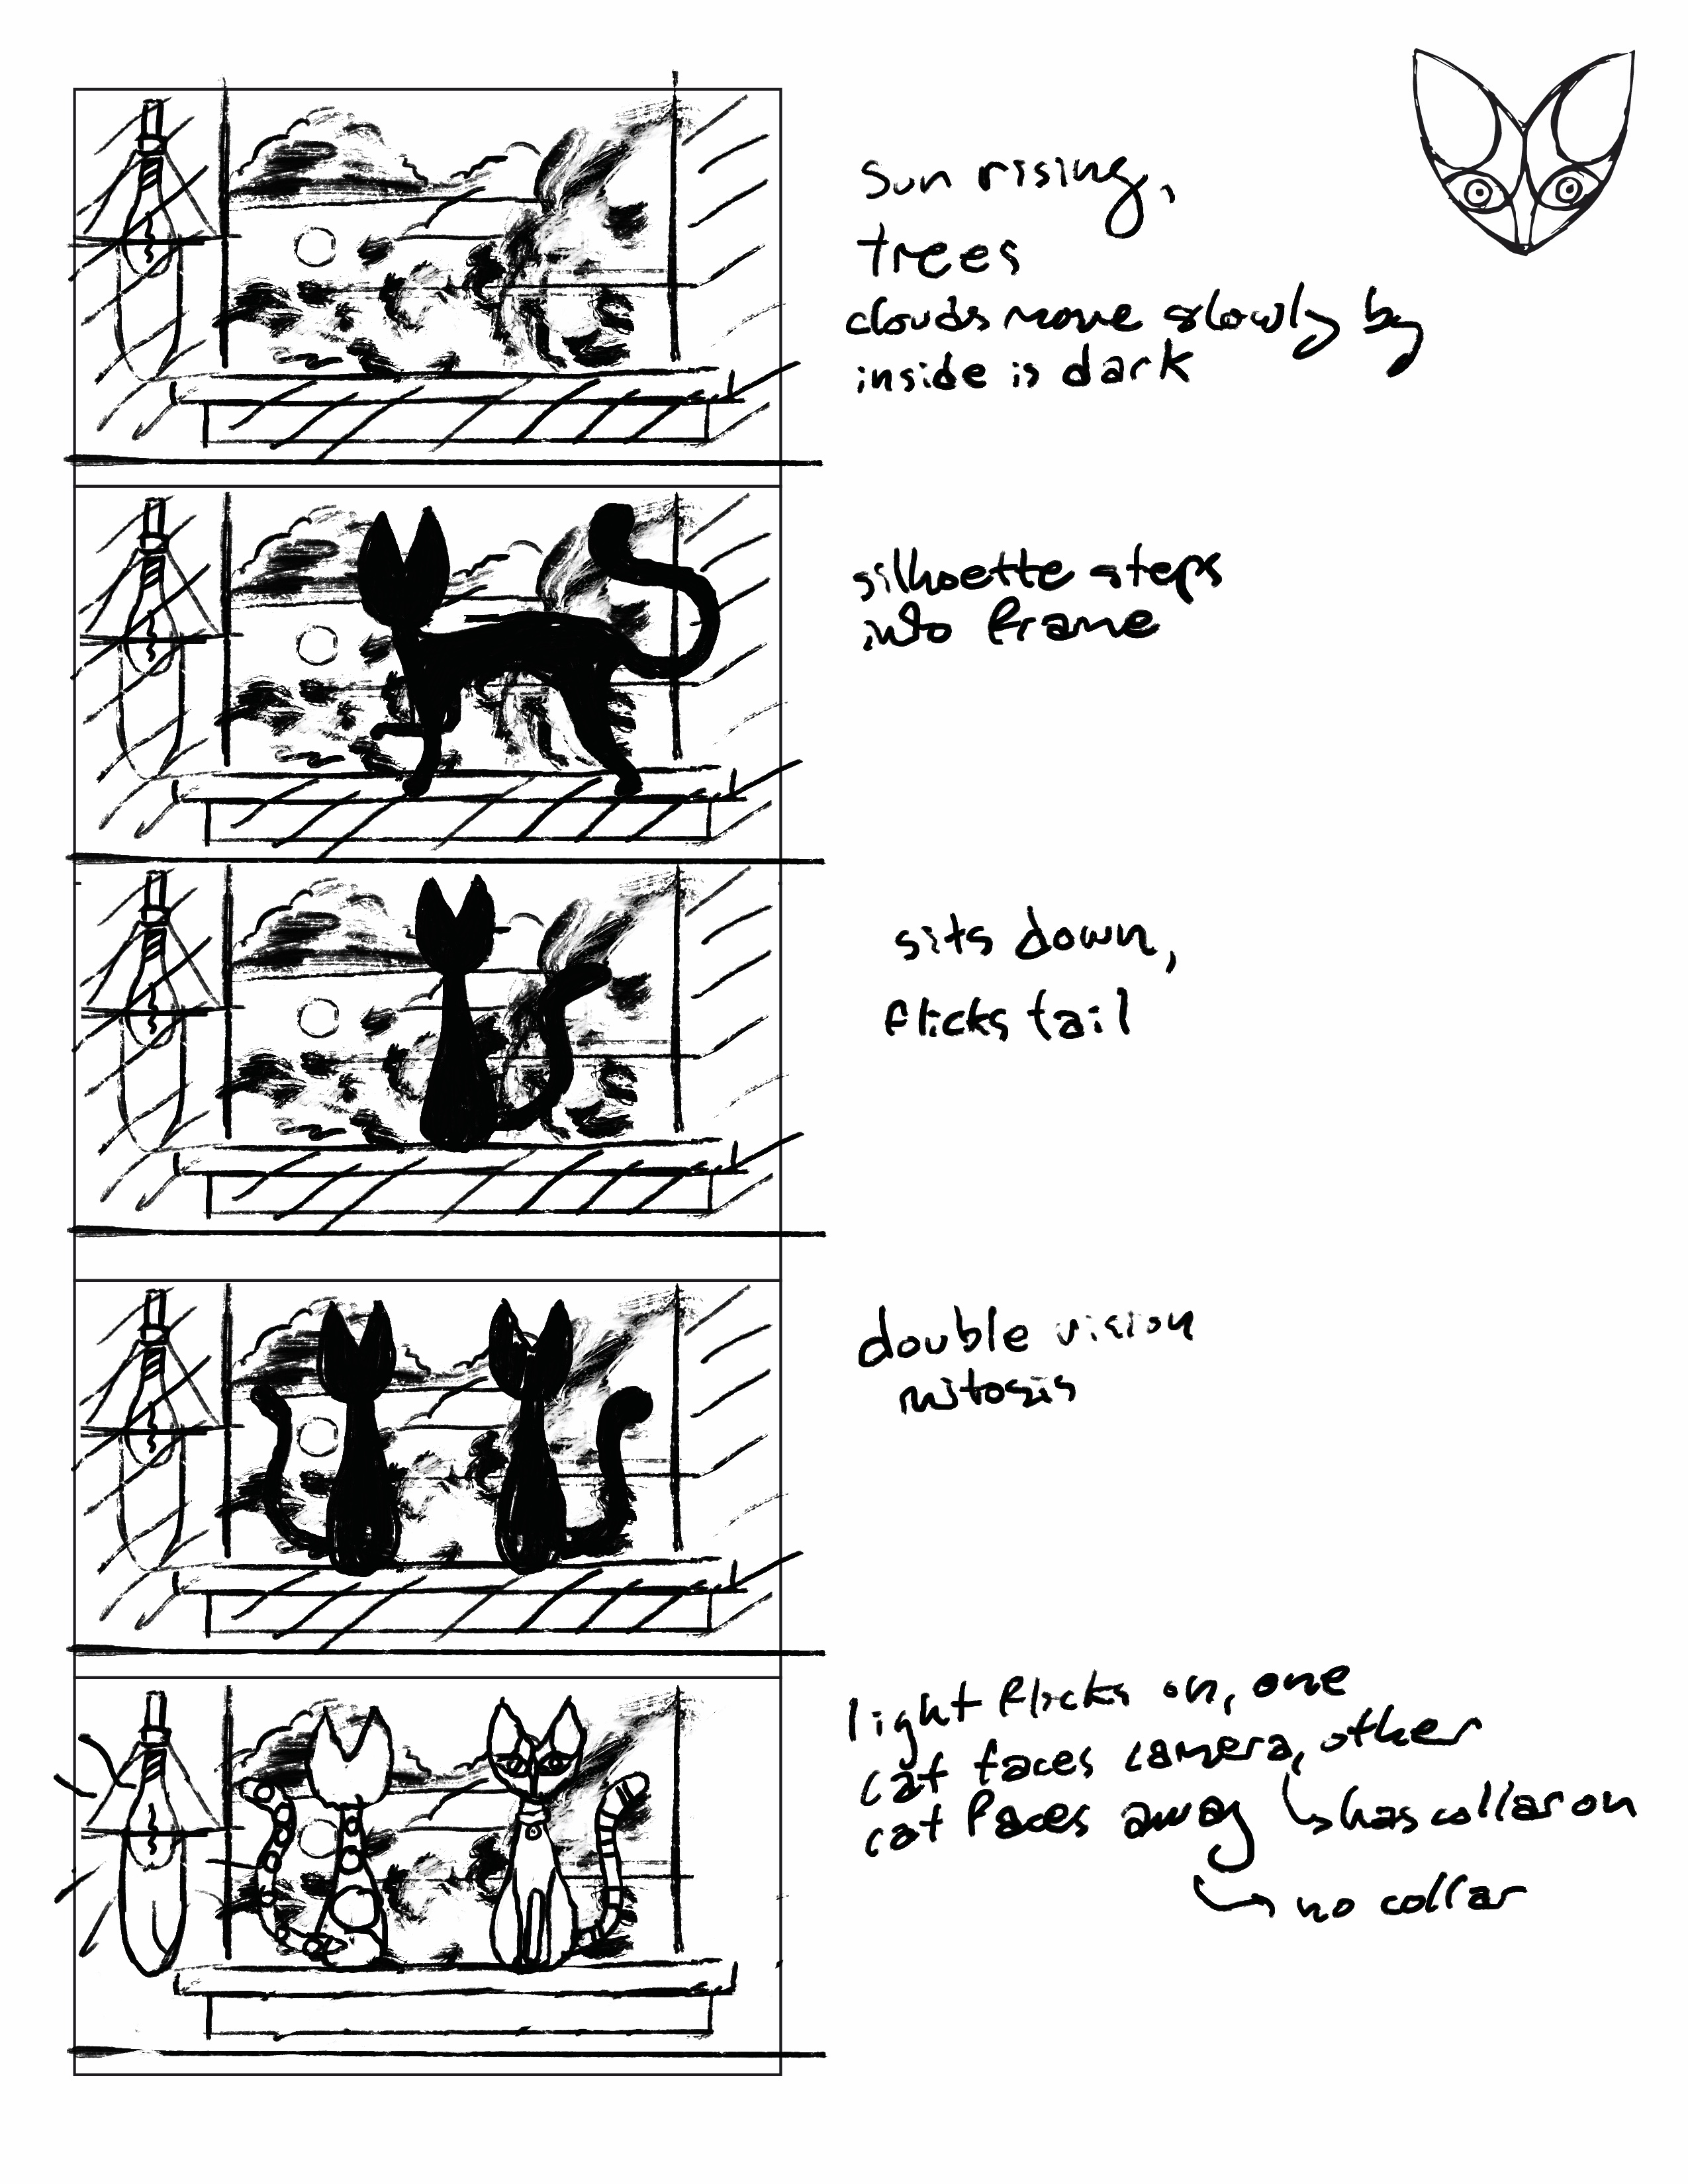 sun rising,
trees
clouds move slowly by
inside is dark
silhoette steps
into frame
sits down,
flicks tail
double vision
mitosis
light flicks on, one
cat faces camera, other
cat faces away
has collar on
no collar